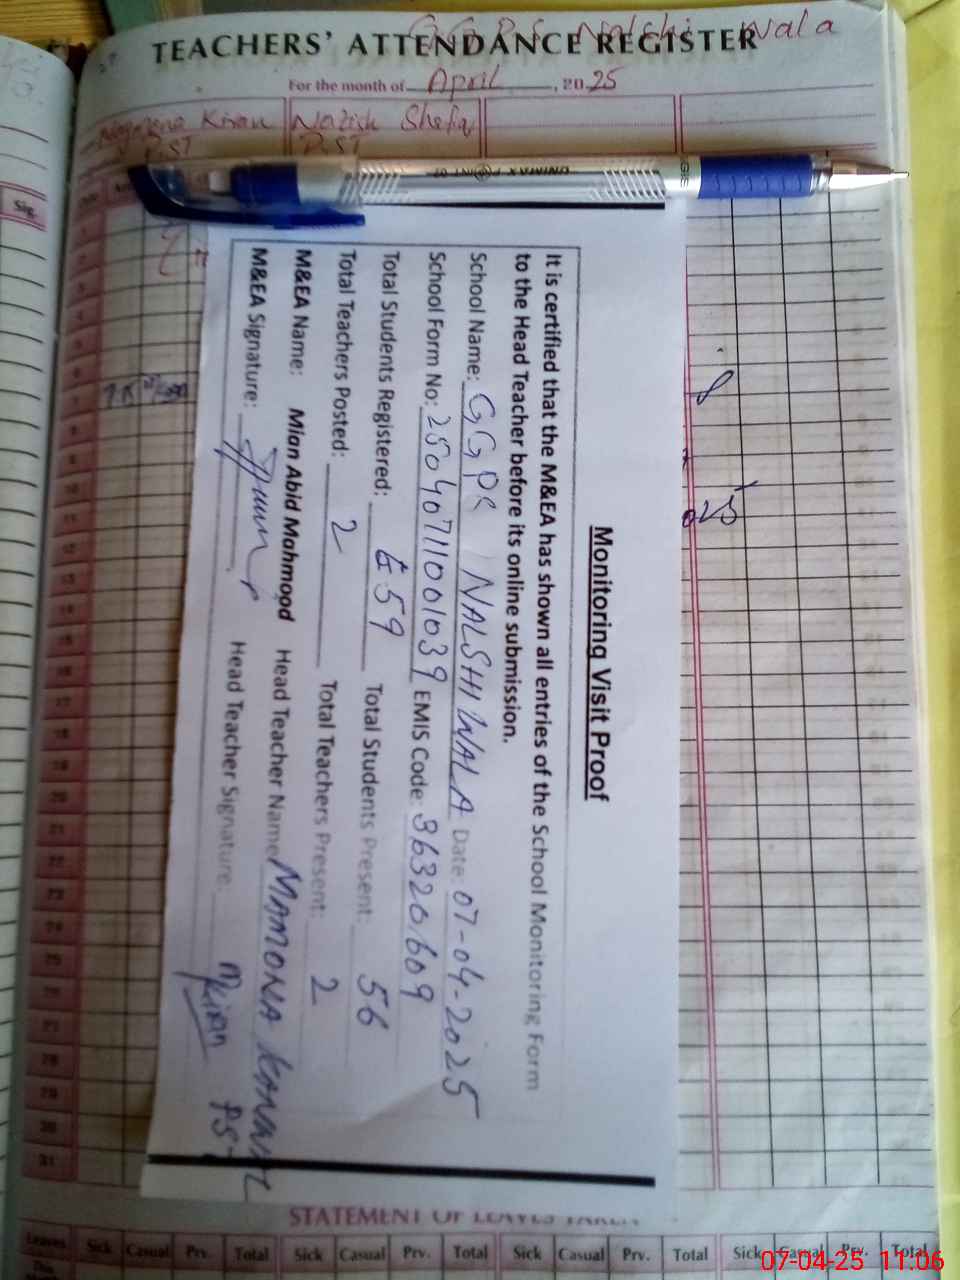 G.G.P.S Nalshi wala
TEACHERS' ATTENDANCE REGISTER
For the month of April, 2025
Kiran Nazish
PST PST
Sig.
Monitoring Visit Proof
It is certified that the M&EA has shown all entries of the School Monitoring Form
to the Head Teacher before its online submission.
School Name: GGPS NALSHIWALA Date: 07-04-2025
School Form No: 25040711001039 EMIS Code: 36320609
Total Students Registered: 59 Total Students Present: 56
Total Teachers Posted: 2 Total Teachers Present: 2
M&EA Name: Mian Abid Mahmood Head Teacher Name: MAMONA KANWAL
M&EA Signature: Head Teacher Signature:
7
8
9
10
11
12
13
14
15
16
17
18
19
20
21
22
23
24
25
26
27
28
29
30
31
STATEMENT OF LEAVES TAKEN
Leaves Sick Casual Prv. Total Sick Casual Prv. Total Sick Casual Prv. Total Sick Casual Prv. Total
This
07-04-25 11:06